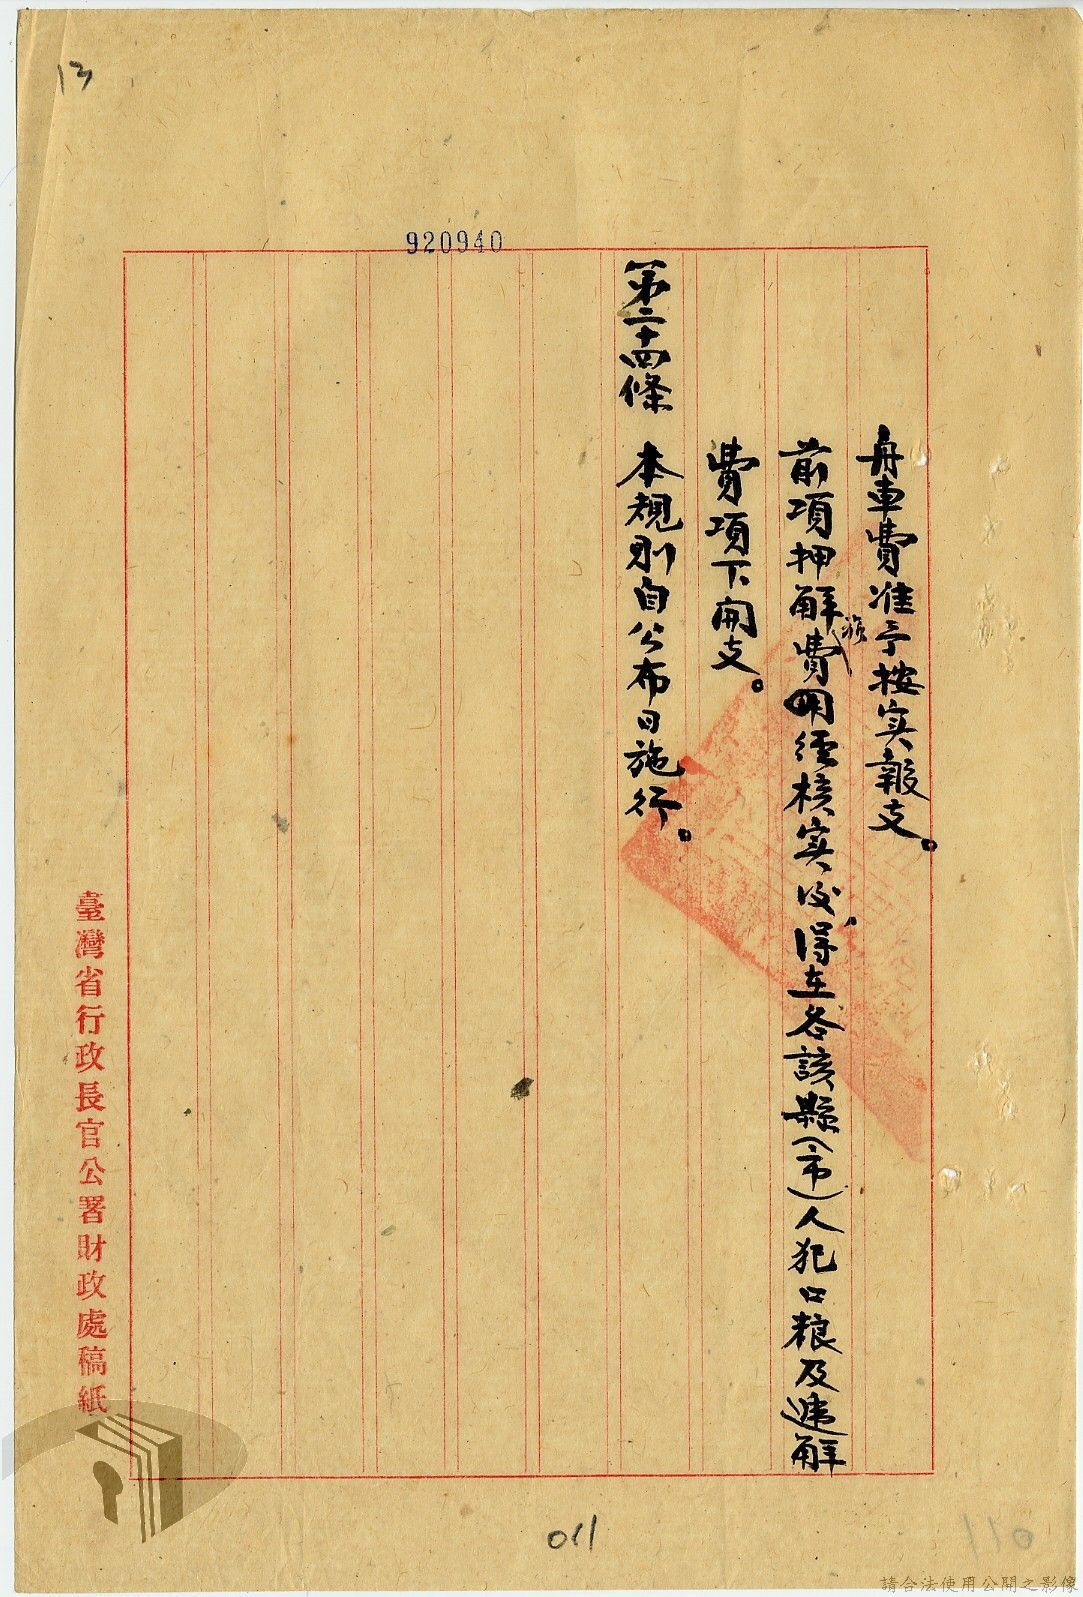 13
920940
舟車費准予按实報支。
前項押解費用須經核实后，得在各該縣（市）人犯口粮及遞解
費項下開支。
第二十四條　本規則自公布日施行。
臺灣省行政長官公署財政處稿紙
011
請合法使用公開之影像